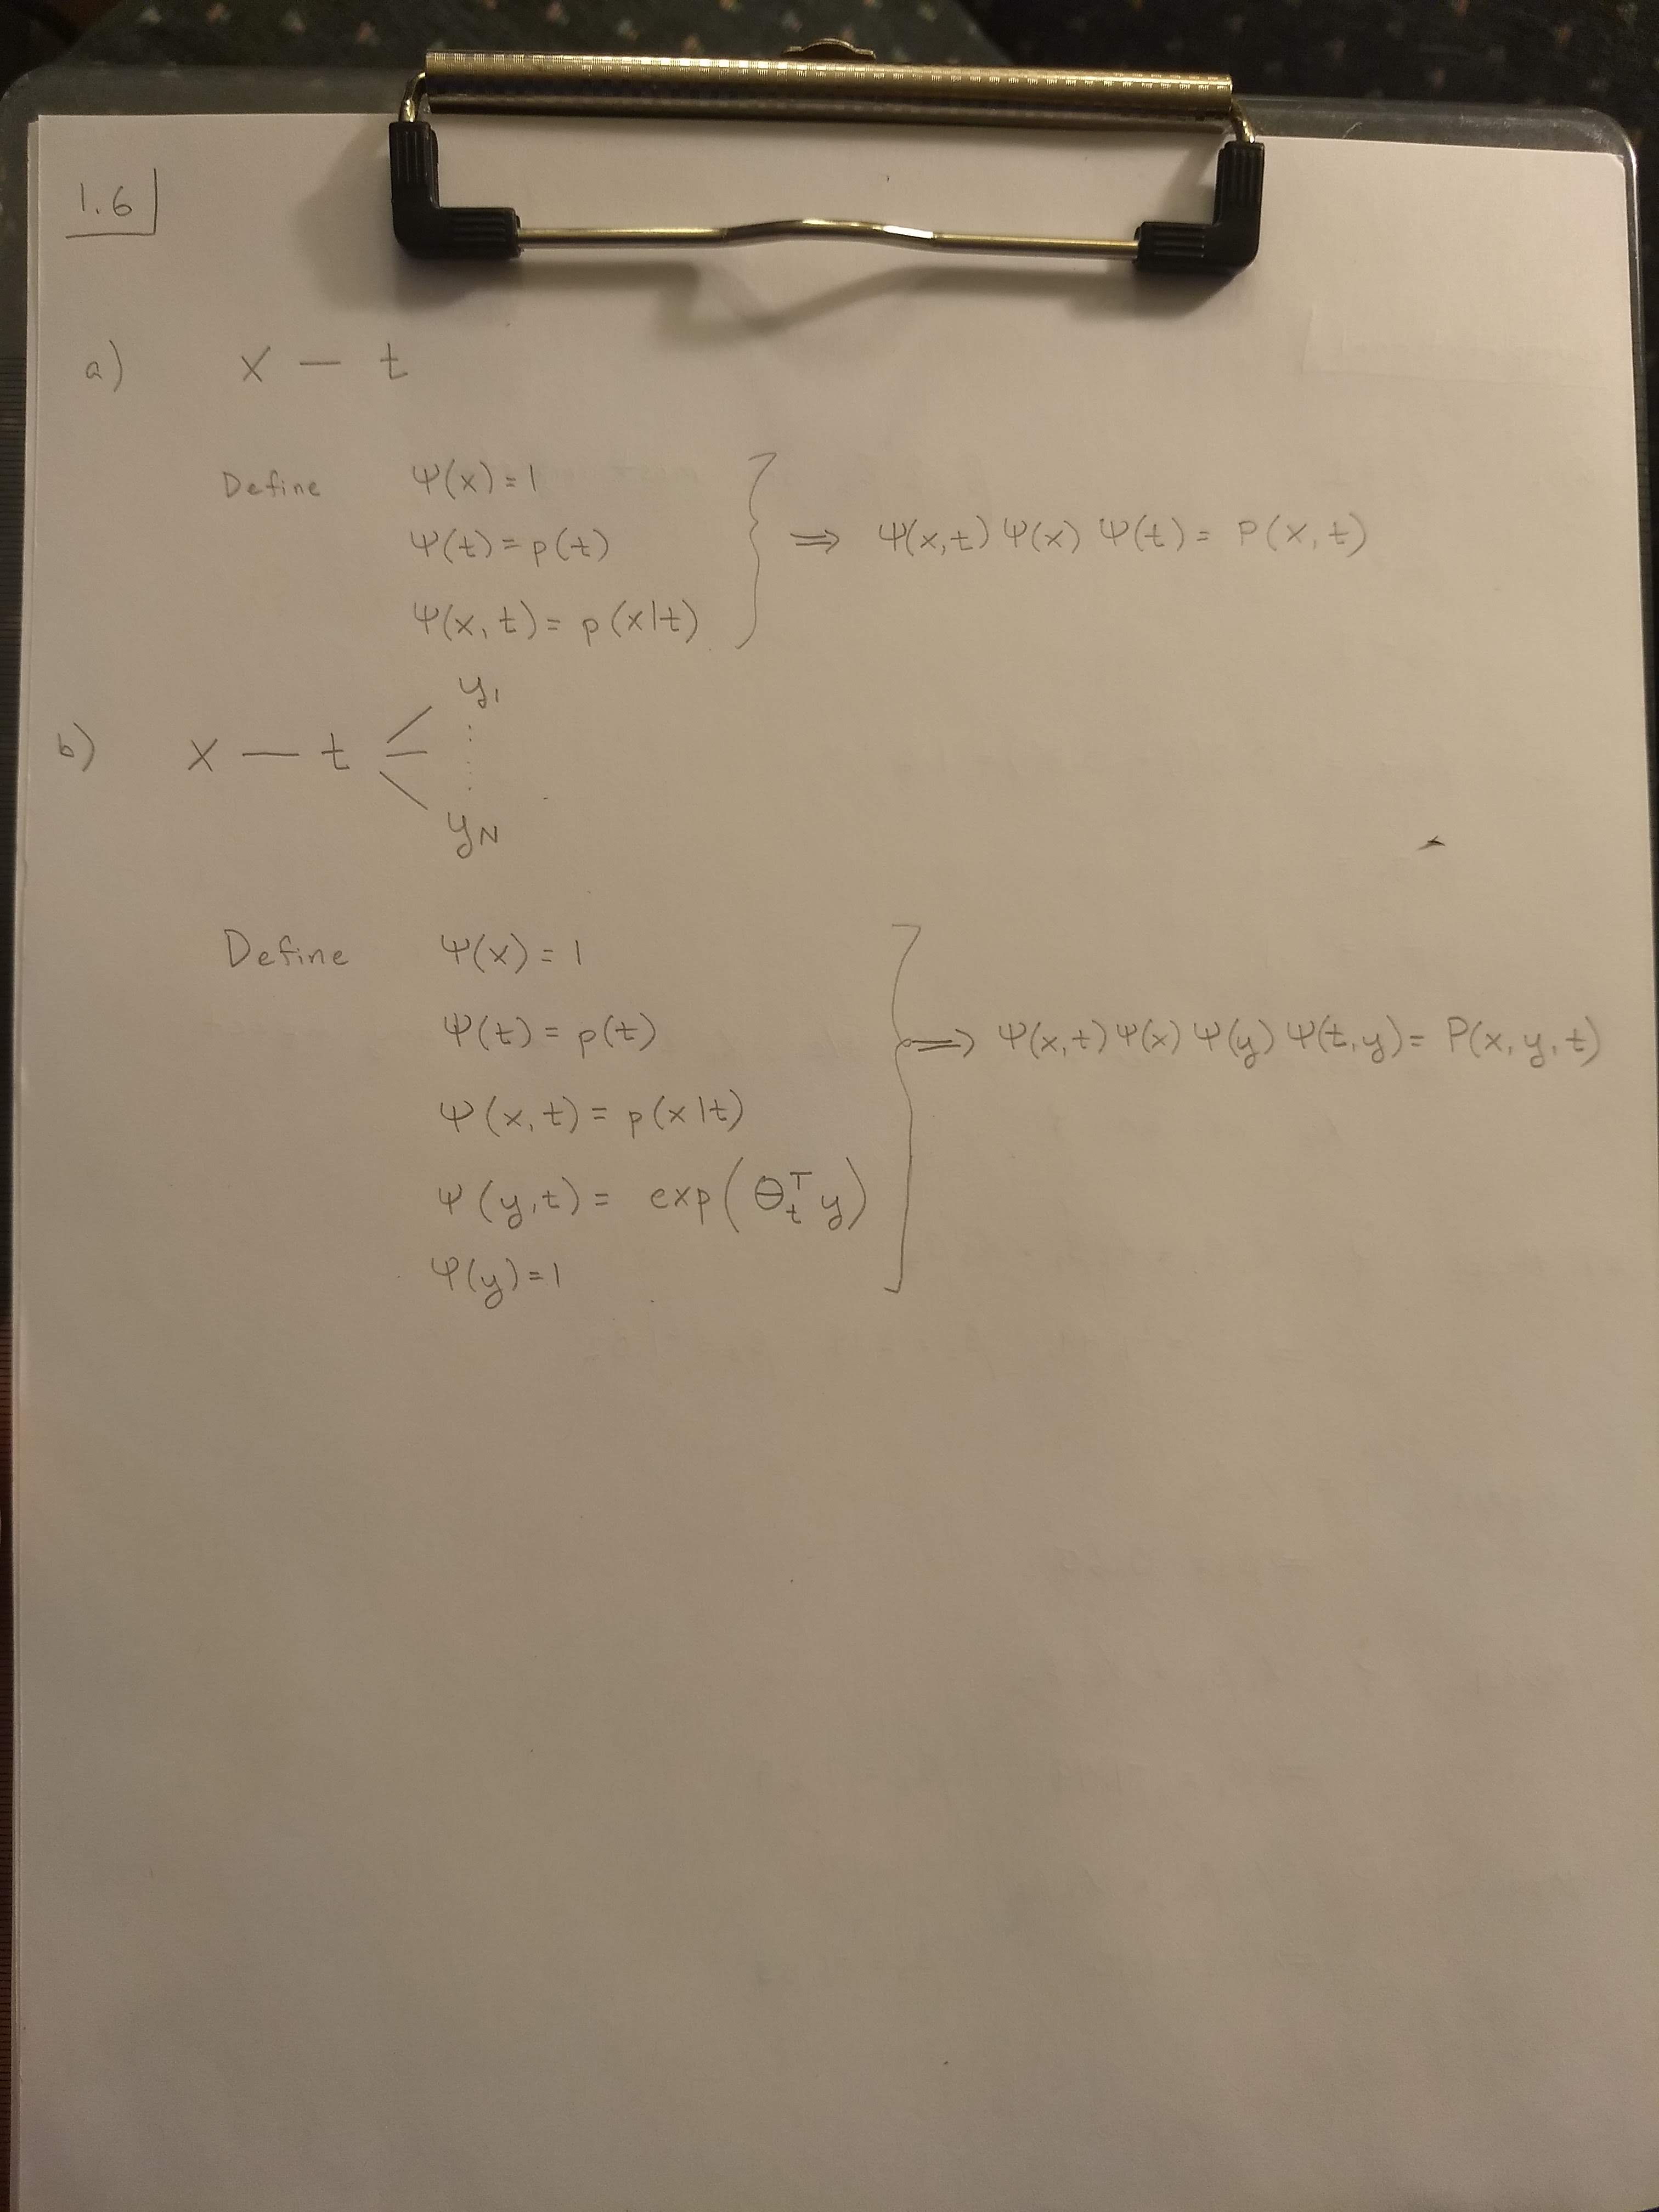 1.6
a) x — t
Define Ψ(x)=1
Ψ(t)=p(t)
Ψ(x,t)=p(x|t)
⟹ Ψ(x,t)Ψ(x)Ψ(t)= P(x,t)
b) x — t
y₁
y_N
Define Ψ(x)=1
Ψ(t)=p(t)
Ψ(x,t)=p(x|t)
Ψ(y,t)= exp(θ_t^T y)
Ψ(y)=1
⟹ Ψ(x,t)Ψ(x)Ψ(y)Ψ(t,y)= P(x,y,t)